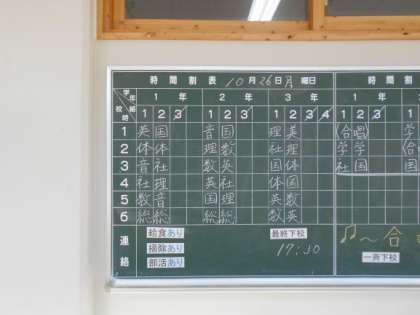 時間割表 10月26日月曜日
時間割
学年 組 校時 1年 2年 3年 1
1 2 3 1 2 3 1 2 3 4 1 2 3
1 英 国 音 国 理 英 合唱 学
2 体 体 理 数 社 理 学 学 合
3 音 社 数 英 国 体 社 国 国
4 社 理 英 社 体 国
5 数 音 国 理 英 数
6 総 総 総 総 数 英
連絡 給食あり 最終下校
掃除あり 17:10 ~合
部活あり 一斉下校